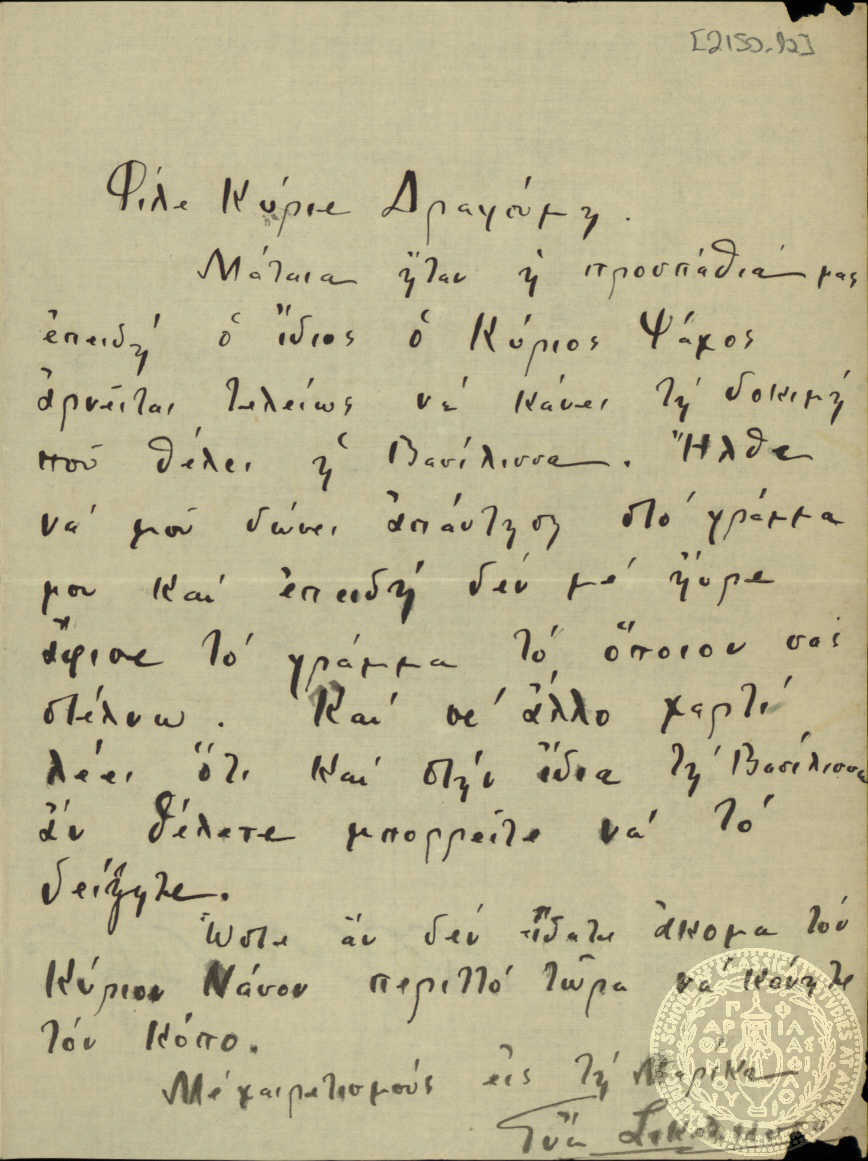 [2150.b]
Φίλε Κύριε Δραγούμη.
Μάταια ἤταν ἡ προσπάθιά μας
ἐπειδή ὁ ἴδιος ὁ Κύριος Ψάχος
ἀρνεῖται τελείως νά κάνει τή δοκιμή
πού θέλει ἡ Βασίλισσα. Ἦλθε
νά μοῦ δώσει ἀπάντηση στό γράμμα
μου καί ἐπειδή δέν μέ ἤυρε
ἄφισε τό γράμμα τό ὅποιον σας
στέλνω. Καί σέ ἄλλο χαρτί
λέει ὅτι καί στήν ἴδια τή Βασίλισσα
ἄν θέλετε μπορρεῖτε νά τό
δείξητε.
Ὥστε ἄν δέν εἴδατε ἀκομα τόν
Κύριον Νάσον περιττό τῶρα νά κάνητε
τόν κόπο.
Μέ χαιρετισμούς εἰς τή Μαρίκα
Εὔα Σικελιανού